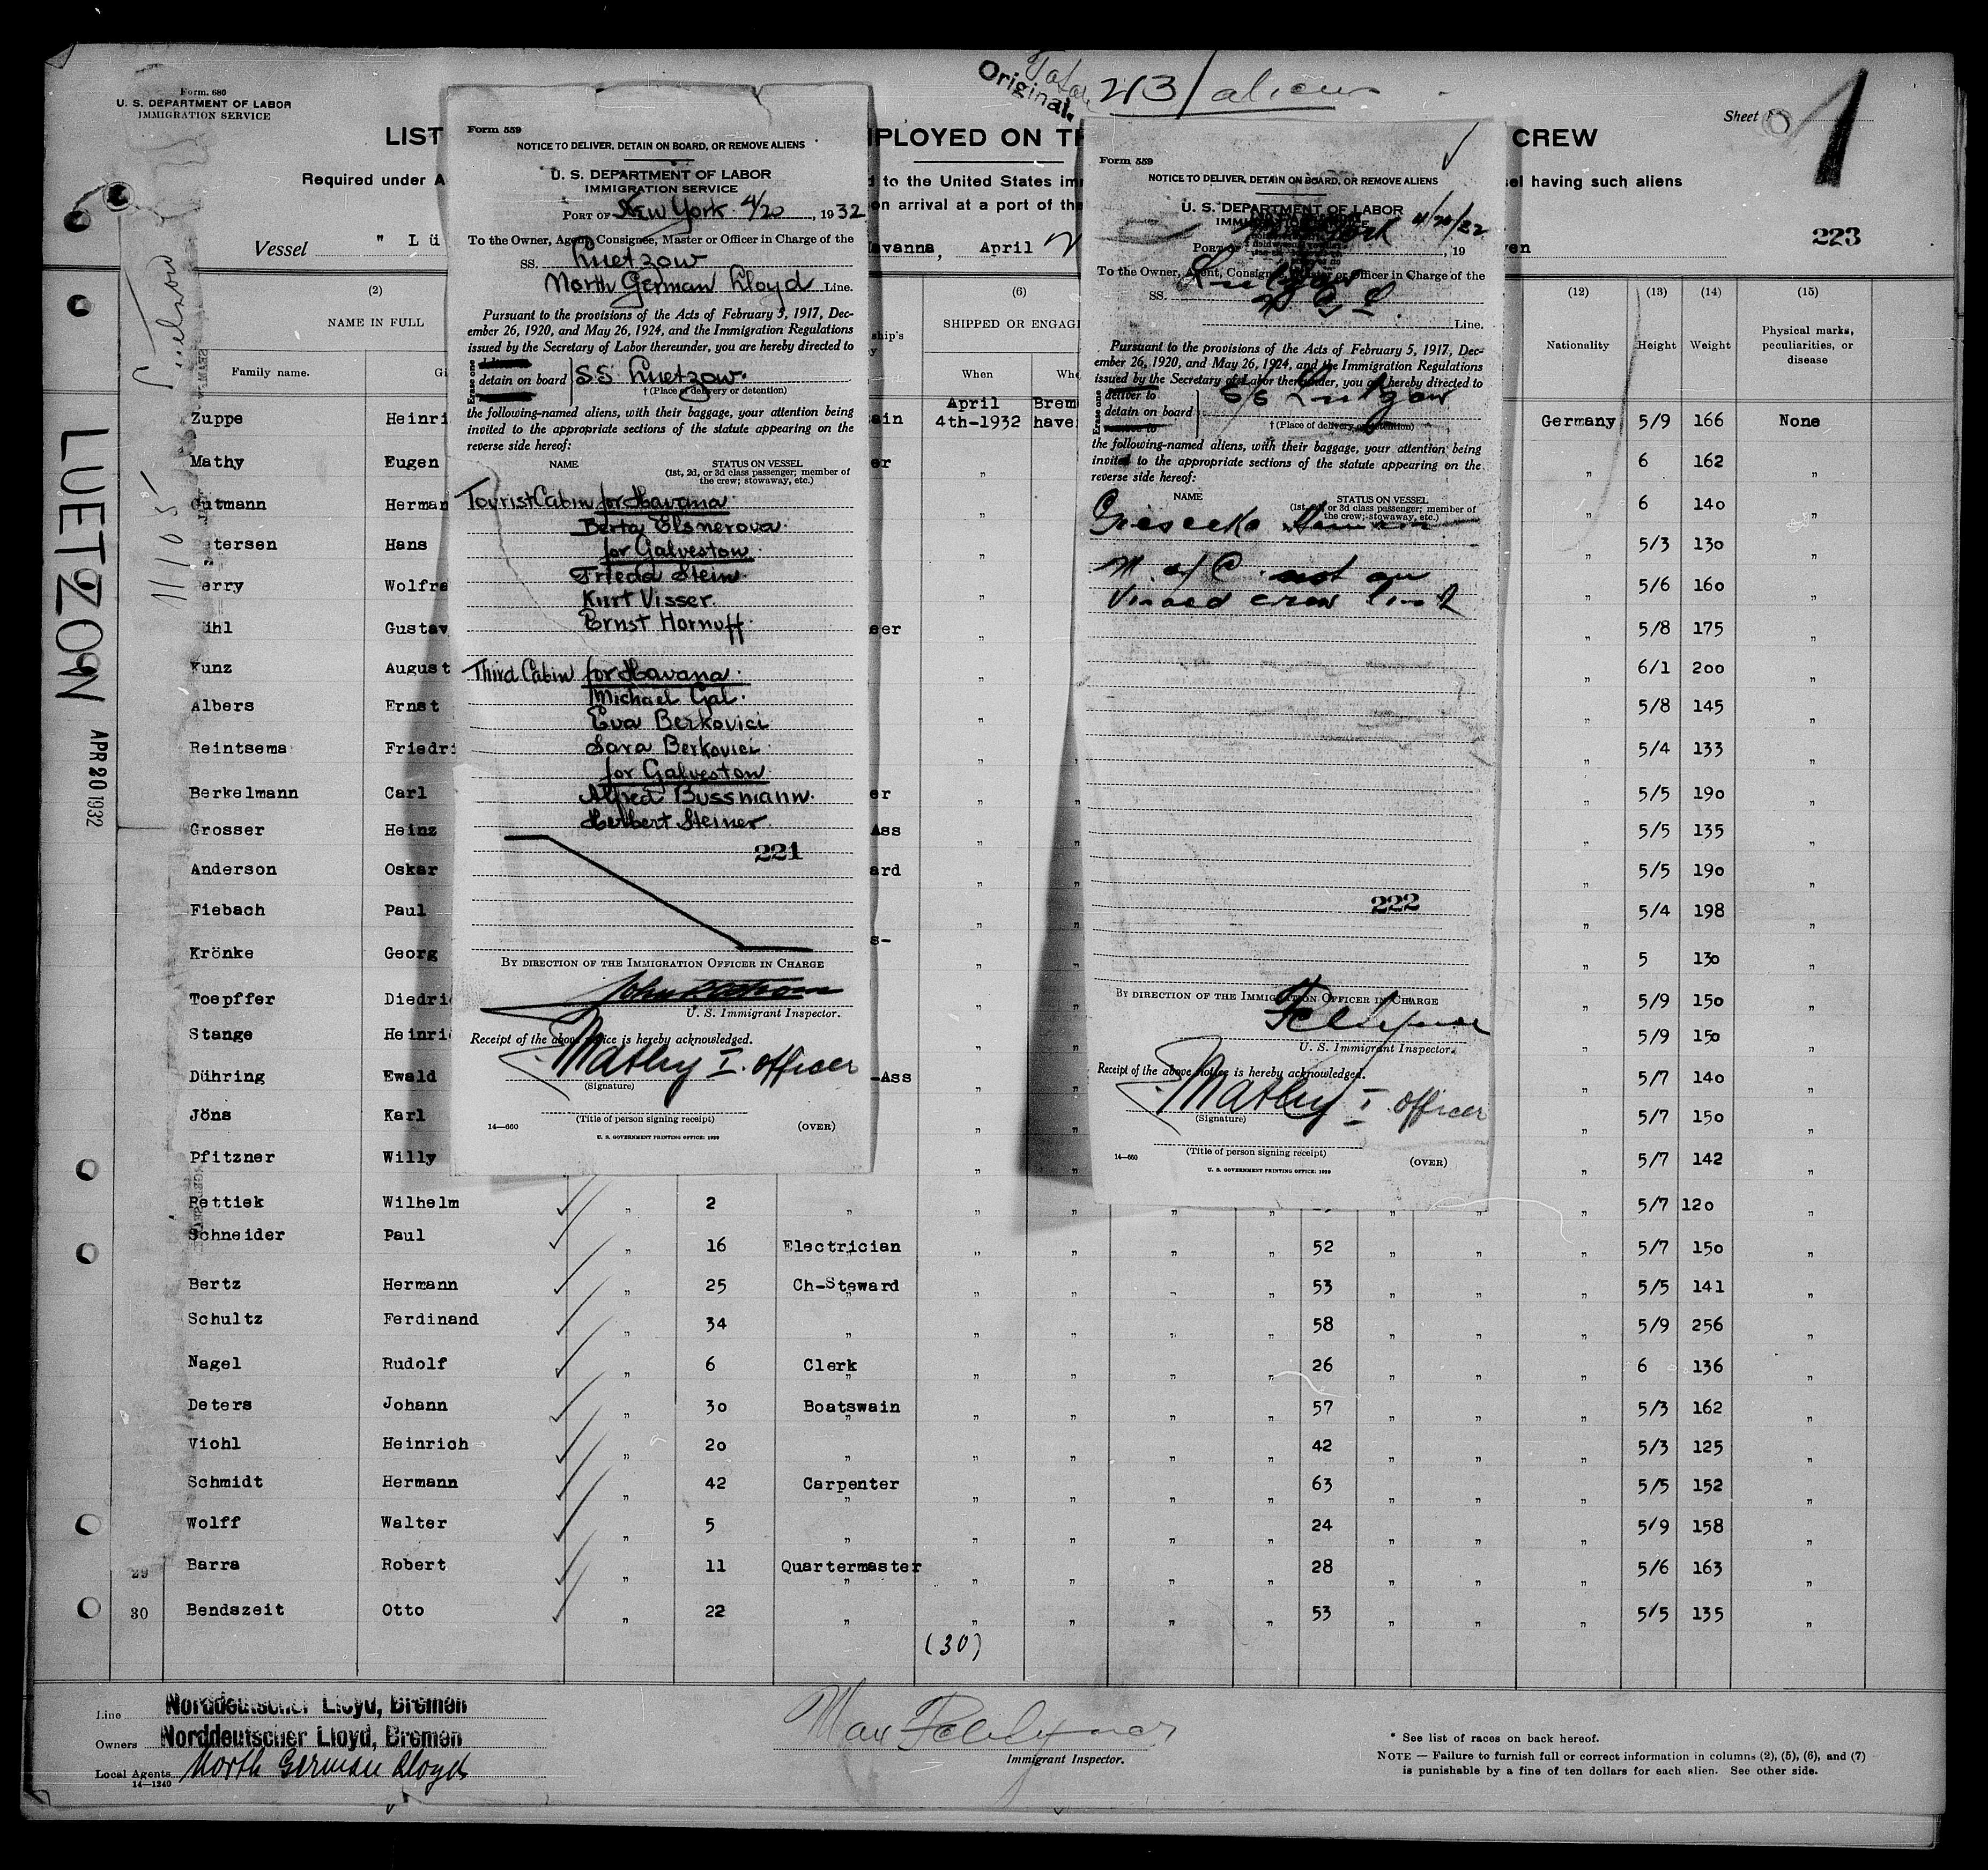 Form. 680
U. S. DEPARTMENT OF LABOR
IMMIGRATION SERVICE
Original.
213 aliens
Sheet
1
LIST
MPLOYED ON
CREW
Required under
d to the United States
having such aliens
on arrival at a port of the
Vessel " Lü
avanna, April
223
LUETZOW
APR 20 1932
11105
(2)
NAME IN FULL
Family name.
(6)
SHIPPED OR ENGAG
When
(12)
Nationality
(13)
Height
(14)
Weight
(15)
Physical marks, peculiarities, or disease
Zuppe Heinri April 4th-1932 Brem haven Germany 5/9 166 None
Mathy Eugen " " 6 162 "
Gutmann Herman " " 6 140 "
Petersen Hans " " 5/3 130 "
erry Wolfra " " 5/6 160 "
ühl Gustav " " 5/8 175 "
Kunz August " " 6/1 200 "
Albers Ernst " " 5/8 145 "
Reintsema Friedri " " 5/4 133 "
Berkelmann Carl er " " 5/5 190 "
Grosser Heinz Ass " " 5/5 135 "
Anderson Oskar ard " " 5/5 190 "
Fiebach Paul " " 5/4 198 "
Krönke Georg " " 5 130 "
Toepffer Diedri " " 5/9 150 "
Stange Heinri " " 5/9 150 "
Dühring Ewald -Ass " " 5/7 140 "
Jöns Karl " " 5/7 150 "
Pfitzner Willy " " 5/7 142 "
Pettiek Wilhelm " 2 " " " " " " " " 5/7 120 "
Schneider Paul " 16 Electrician " " " " 52 " " " 5/7 150 "
Bertz Hermann " 25 Ch-Steward " " " " 53 " " " 5/5 141 "
Schultz Ferdinand " 34 " " " " " 58 " " " 5/9 256 "
Nagel Rudolf " 6 Clerk " " " " 26 " " " 6 136 "
Deters Johann " 30 Boatswain " " " " 57 " " " 5/3 162 "
Viohl Heinrich " 20 " " " " " 42 " " " 5/3 125 "
Schmidt Hermann " 42 Carpenter " " " " 63 " " " 5/5 152 "
Wolff Walter " 5 " " " " " 24 " " " 5/9 158 "
29 Barra Robert " 11 Quartermaster " " " " 28 " " " 5/6 163 "
30 Bendszeit Otto " 22 " " " " " 53 " " " 5/5 135 "
(30)
Line Norddeutscher Lloyd, Bremen
Owners Norddeutscher Lloyd, Bremen
Local Agents North German Lloyd
14—1240
Immigrant Inspector.
* See list of races on back hereof.
NOTE — Failure to furnish full or correct information in columns (2), (5), (6), and (7)
is punishable by a fine of ten dollars for each alien. See other side.
Form 559
NOTICE TO DELIVER, DETAIN ON BOARD, OR REMOVE ALIENS
U. S. DEPARTMENT OF LABOR
IMMIGRATION SERVICE
PORT OF New York 4/20, 1932
To the Owner, Agent, Consignee, Master or Officer in Charge of the
SS. Luetzow
North German Lloyd Line.
Pursuant to the provisions of the Acts of February 5, 1917, Dec-
ember 26, 1920, and May 26, 1924, and the Immigration Regulations
issued by the Secretary of Labor thereunder, you are hereby directed to
Erase one
detain on board SS Luetzow.
† (Place of delivery or detention)
the following-named aliens, with their baggage, your attention being
invited to the appropriate sections of the statute appearing on the
reverse side hereof:
NAME
STATUS ON VESSEL
(1st, 2d, or 3d class passenger; member of
the crew; stowaway, etc.)
Tourist Cabin for Havana
Berta Elsnerova
for Galveston
Frieda Stein
Kurt Visser
Ernst Hornuff
Third Cabin for Havana
Michael Gal
Eva Berkovici
Sara Berkovici
for Galveston
Alfred Bussmann
Herbert Steiner
221
BY DIRECTION OF THE IMMIGRATION OFFICER IN CHARGE
U. S. Immigrant Inspector.
Receipt of the above notice is hereby acknowledged.
Mathy I. Officer
(Signature)
(Title of person signing receipt)
14—660
U. S. GOVERNMENT PRINTING OFFICE: 1929
(OVER)
Form 559
NOTICE TO DELIVER, DETAIN ON BOARD, OR REMOVE ALIENS
U. S. DEPARTMENT OF LABOR
PORT OF 4/20/32, 19
To the Owner, Agent, Consignee, Master or Officer in Charge of the
SS. Lutzow
N G L
Line.
Pursuant to the provisions of the Acts of February 5, 1917, Dec-
ember 26, 1920, and May 26, 1924, and the Immigration Regulations
issued by the Secretary of Labor thereunder, you are hereby directed to
Erase one
deliver to
detain on board SS Lutzow
† (Place of delivery or detention)
the following-named aliens, with their baggage, your attention being
invited to the appropriate sections of the statute appearing on the
reverse side hereof:
NAME
STATUS ON VESSEL
(1st, 2d, or 3d class passenger; member of
the crew; stowaway, etc.)
M. of C. not on
Visaed crew list
222
BY DIRECTION OF THE IMMIGRATION OFFICER IN CHARGE
U. S. Immigrant Inspector.
Receipt of the above notice is hereby acknowledged.
Mathy I. Officer
(Signature)
(Title of person signing receipt)
14—660
U. S. GOVERNMENT PRINTING OFFICE: 1929
(OVER)